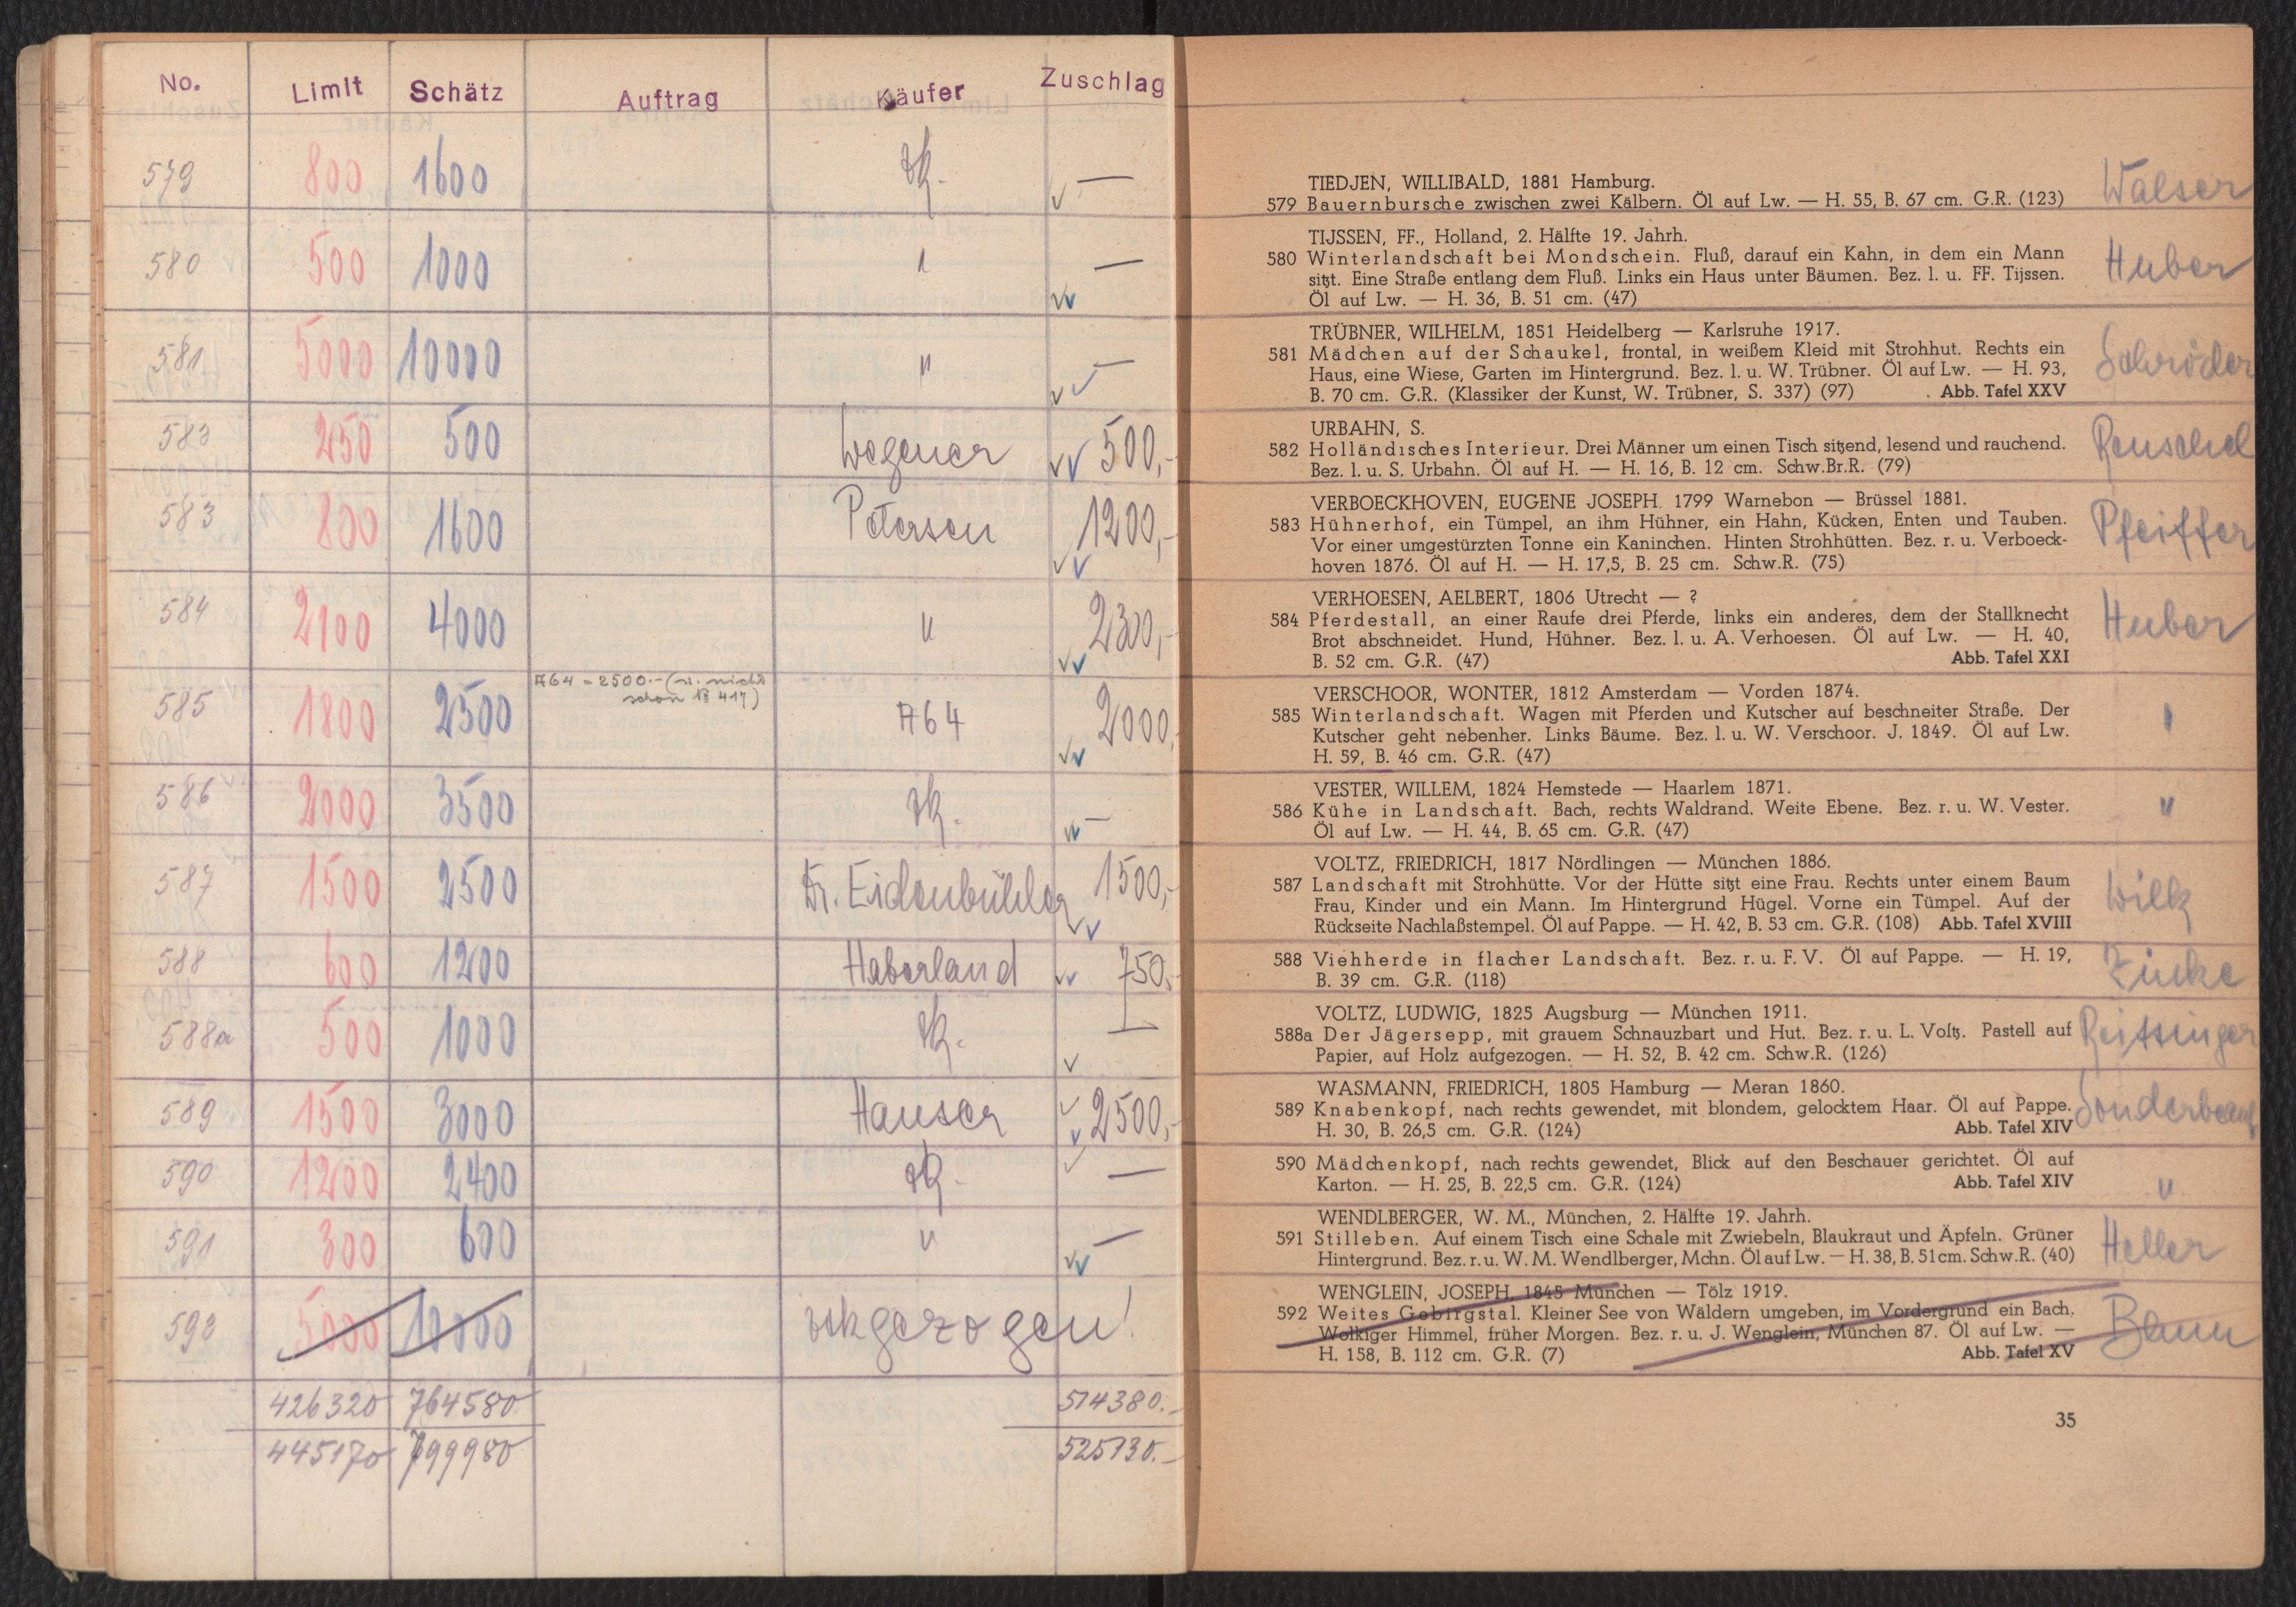 No. Limit Schätz Auftrag Käufer Zuschlag
579 800 1600 —
580 500 1000 " —
581 5000 10000 " —
582 250 500 Wegener 500,-
583 800 1600 Petersen 1200,-
584 2100 4000 " 2300,-
A64 = 2500.-
schon № 417)
585 1800 2500 A64 2000,-
586 2000 3500 —
587 1500 2500 Dr. Eidenbühler 1500,-
588 600 1200 Haberland 750,-
588a 500 1000 —
589 1500 3000 Hauser 2500,-
590 1200 2400 —
591 300 600 " —
592 5000 10000 zurückgezogen!
426320 764580 514380.-
445170 799980 525130.-
TIEDJEN, WILLIBALD, 1881 Hamburg.
579 Bauernbursche zwischen zwei Kälbern. Öl auf Lw. — H. 55, B. 67 cm. G.R. (123) Walser
TIJSSEN, FF., Holland, 2. Hälfte 19. Jahrh.
580 Winterlandschaft bei Mondschein. Fluß, darauf ein Kahn, in dem ein Mann Huber
sitzt. Eine Straße entlang dem Fluß. Links ein Haus unter Bäumen. Bez. l. u. FF. Tijssen.
Öl auf Lw. — H. 36, B. 51 cm. (47)
TRÜBNER, WILHELM, 1851 Heidelberg — Karlsruhe 1917.
581 Mädchen auf der Schaukel, frontal, in weißem Kleid mit Strohhut. Rechts ein Schröder
Haus, eine Wiese, Garten im Hintergrund. Bez. l. u. W. Trübner. Öl auf Lw. — H. 93,
B. 70 cm. G.R. (Klassiker der Kunst, W. Trübner, S. 337) (97) Abb. Tafel XXV
URBAHN, S.
582 Holländisches Interieur. Drei Männer um einen Tisch sitzend, lesend und rauchend. Reuschel
Bez. l. u. S. Urbahn. Öl auf H. — H. 16, B. 12 cm. Schw.Br.R. (79)
VERBOECKHOVEN, EUGENE JOSEPH. 1799 Warnebon — Brüssel 1881.
583 Hühnerhof, ein Tümpel, an ihm Hühner, ein Hahn, Kücken, Enten und Tauben. Pfeiffer
Vor einer umgestürzten Tonne ein Kaninchen. Hinten Strohhütten. Bez. r. u. Verboeck-
hoven 1876. Öl auf H. — H. 17,5, B. 25 cm. Schw.R. (75)
VERHOESEN, AELBERT, 1806 Utrecht — ?
584 Pferdestall, an einer Raufe drei Pferde, links ein anderes, dem der Stallknecht Huber
Brot abschneidet. Hund, Hühner. Bez. l. u. A. Verhoesen. Öl auf Lw. — H. 40,
B. 52 cm. G.R. (47) Abb. Tafel XXI
VERSCHOOR, WONTER, 1812 Amsterdam — Vorden 1874.
585 Winterlandschaft. Wagen mit Pferden und Kutscher auf beschneiter Straße. Der "
Kutscher geht nebenher. Links Bäume. Bez. l. u. W. Verschoor. J. 1849. Öl auf Lw.
H. 59, B. 46 cm. G.R. (47)
VESTER, WILLEM, 1824 Hemstede — Haarlem 1871.
586 Kühe in Landschaft. Bach, rechts Waldrand. Weite Ebene. Bez. r. u. W. Vester. "
Öl auf Lw. — H. 44, B. 65 cm. G.R. (47)
VOLTZ, FRIEDRICH, 1817 Nördlingen — München 1886.
587 Landschaft mit Strohhütte. Vor der Hütte sitzt eine Frau. Rechts unter einem Baum Wilk
Frau, Kinder und ein Mann. Im Hintergrund Hügel. Vorne ein Tümpel. Auf der
Rückseite Nachlaßstempel. Öl auf Pappe. — H. 42, B. 53 cm. G.R. (108) Abb. Tafel XVIII
588 Viehherde in flacher Landschaft. Bez. r. u. F. V. Öl auf Pappe. — H. 19, Zinke
B. 39 cm. G.R. (118)
VOLTZ, LUDWIG, 1825 Augsburg — München 1911.
588a Der Jägersepp, mit grauem Schnauzbart und Hut. Bez. r. u. L. Voltz. Pastell auf Reitsinger
Papier, auf Holz aufgezogen. — H. 52, B. 42 cm. Schw.R. (126)
WASMANN, FRIEDRICH, 1805 Hamburg — Meran 1860.
589 Knabenkopf, nach rechts gewendet, mit blondem, gelocktem Haar. Öl auf Pappe. Sonderbeauf
H. 30, B. 26,5 cm. G.R. (124) Abb. Tafel XIV
590 Mädchenkopf, nach rechts gewendet, Blick auf den Beschauer gerichtet. Öl auf
Karton. — H. 25, B. 22,5 cm. G.R. (124) Abb. Tafel XIV "
WENDLBERGER, W. M., München, 2. Hälfte 19. Jahrh.
591 Stilleben. Auf einem Tisch eine Schale mit Zwiebeln, Blaukraut und Äpfeln. Grüner Heller
Hintergrund. Bez. r. u. W. M. Wendlberger, Mchn. Öl auf Lw. — H. 38, B. 51 cm. Schw.R. (40)
WENGLEIN, JOSEPH, 1845 München — Tölz 1919.
592 Weites Gebirgstal. Kleiner See von Wäldern umgeben, im Vordergrund ein Bach.
Wolkiger Himmel, früher Morgen. Bez. r. u. J. Wenglein, München 87. Öl auf Lw. —
H. 158, B. 112 cm. G.R. (7) Abb. Tafel XV
35